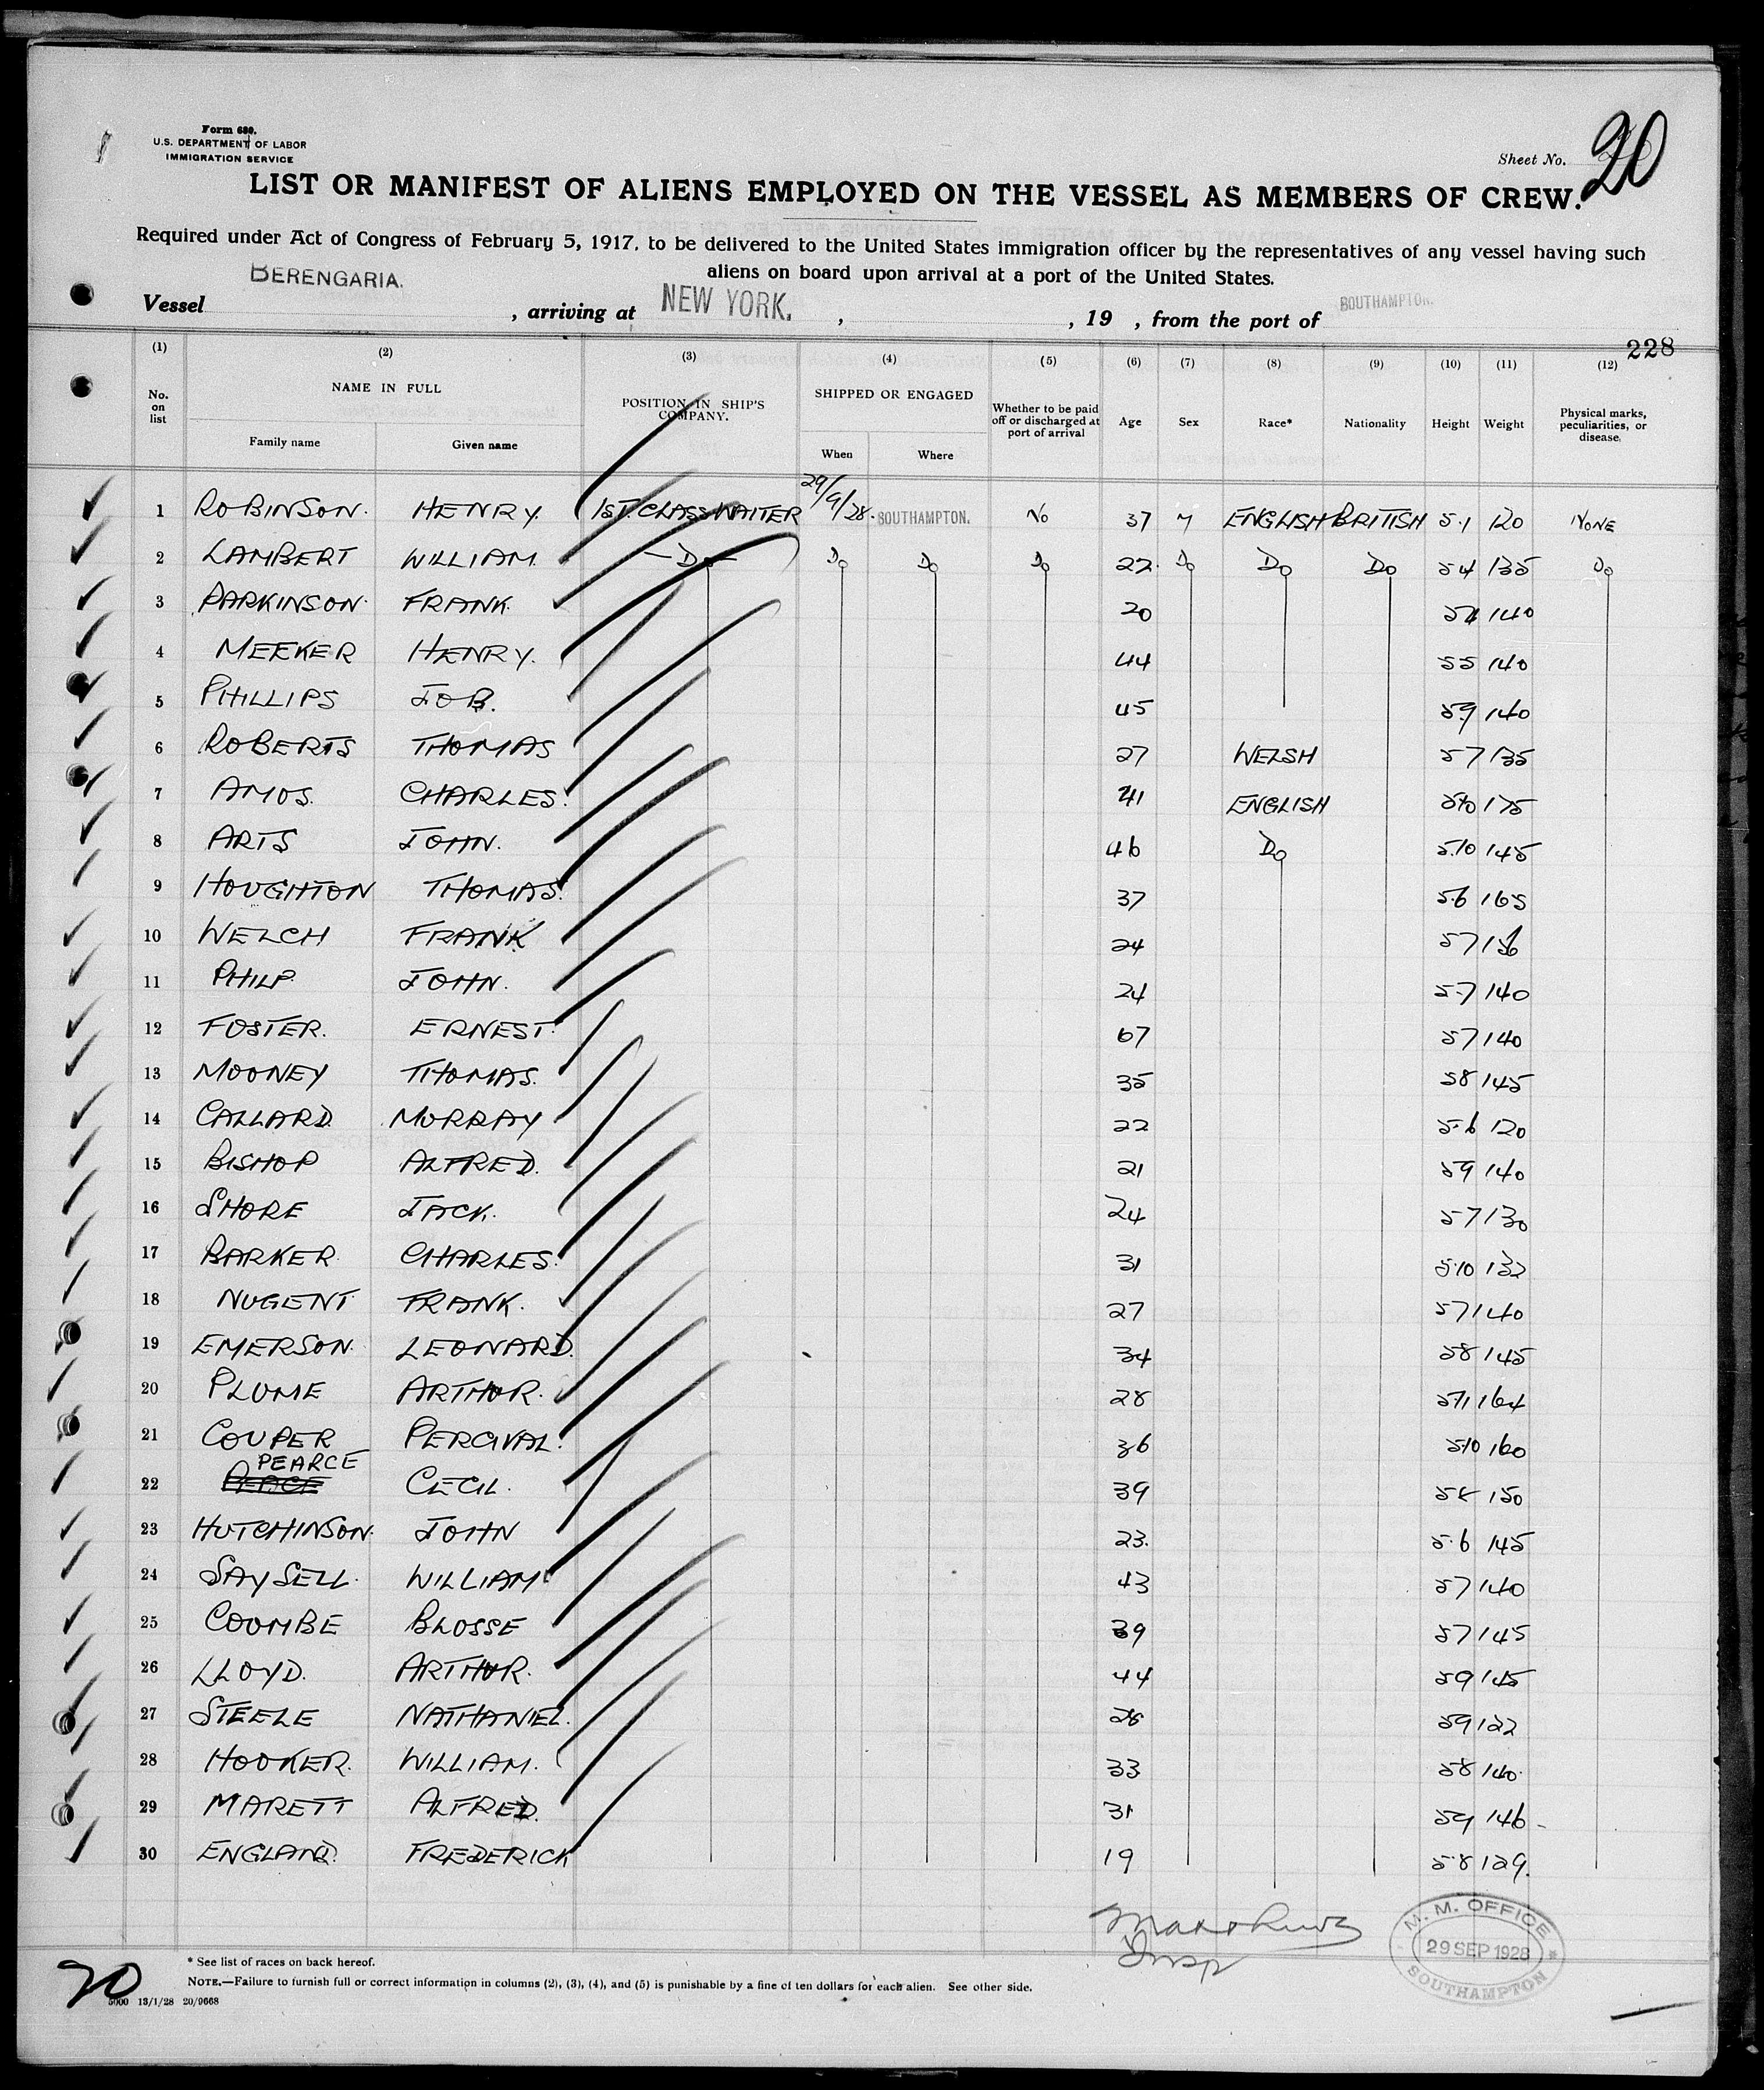 Form 680.
U.S. DEPARTMENT OF LABOR
IMMIGRATION SERVICE
Sheet No. 20
LIST OR MANIFEST OF ALIENS EMPLOYED ON THE VESSEL AS MEMBERS OF CREW.
Required under Act of Congress of February 5, 1917, to be delivered to the United States immigration officer by the representatives of any vessel having such
aliens on board upon arrival at a port of the United States.
Vessel BERENGARIA. , arriving at NEW YORK. , , 19 , from the port of SOUTHAMPTON.
228
(1) (2) (3) (4) (5) (6) (7) (8) (9) (10) (11) (12)
No. on list NAME IN FULL Family name Given name POSITION IN SHIP'S COMPANY. SHIPPED OR ENGAGED When Where Whether to be paid off or discharged at port of arrival Age Sex Race* Nationality Height Weight Physical marks, peculiarities, or disease.
1 ROBINSON. HENRY. 1ST. CLASS WAITER 29/9/28. SOUTHAMPTON. No 37 M ENGLISH BRITISH 5.1 120 NONE
2 LAMBERT WILLIAM. — Do — Do Do Do 22. Do Do Do 54 135 Do
3 PARKINSON. FRANK. 20 54 140
4 MEEKER HENRY. 44 55 140
5 PHILLIPS JOB. 45 59 140
6 ROBERTS THOMAS 27 WELSH 57 135
7 AMOS. CHARLES. 41 ENGLISH 510 175
8 ARTS JOHN. 46 Do 5.10 145
9 HOUGHTON THOMAS. 37 5.6 165
10 WELCH FRANK 24 57
11 PHILP. JOHN. 24 5.7 140
12 FOSTER. ERNEST. 67 57 140
13 MOONEY THOMAS. 35 58 145
14 CALLARD. MURRAY 22 5.6 120
15 BISHOP ALFRED. 21 59 140
16 SHORE JACK. 24 57 130
17 BARKER. CHARLES. 31 5.10 132
18 NUGENT FRANK. 27 57 140
19 EMERSON. LEONARD. 34 58 145
20 PLUME ARTHUR. 28 511 164
21 COUPER PERCIVAL. 36 510 160
22 PEARCE CECIL. 39 150
23 HUTCHINSON. JOHN 23. 5.6 145
24 SAYSELL. WILLIAM 43 57 140
25 COOMBE BLOSSE 39 57 145
26 LLOYD. ARTHUR. 44 59 145
27 STEELE NATHANIEL. 28 59 122
28 HOOKER. WILLIAM. 33 58 140.
29 MARETT ALFRED. 31 59 146
30 ENGLAND. FREDERICK 19 5.8 129.
M. M. OFFICE
29 SEP 1928
SOUTHAMPTON
* See list of races on back hereof.
NOTE.—Failure to furnish full or correct information in columns (2), (3), (4), and (5) is punishable by a fine of ten dollars for each alien. See other side.
20
5000 13/1/28 20/9668